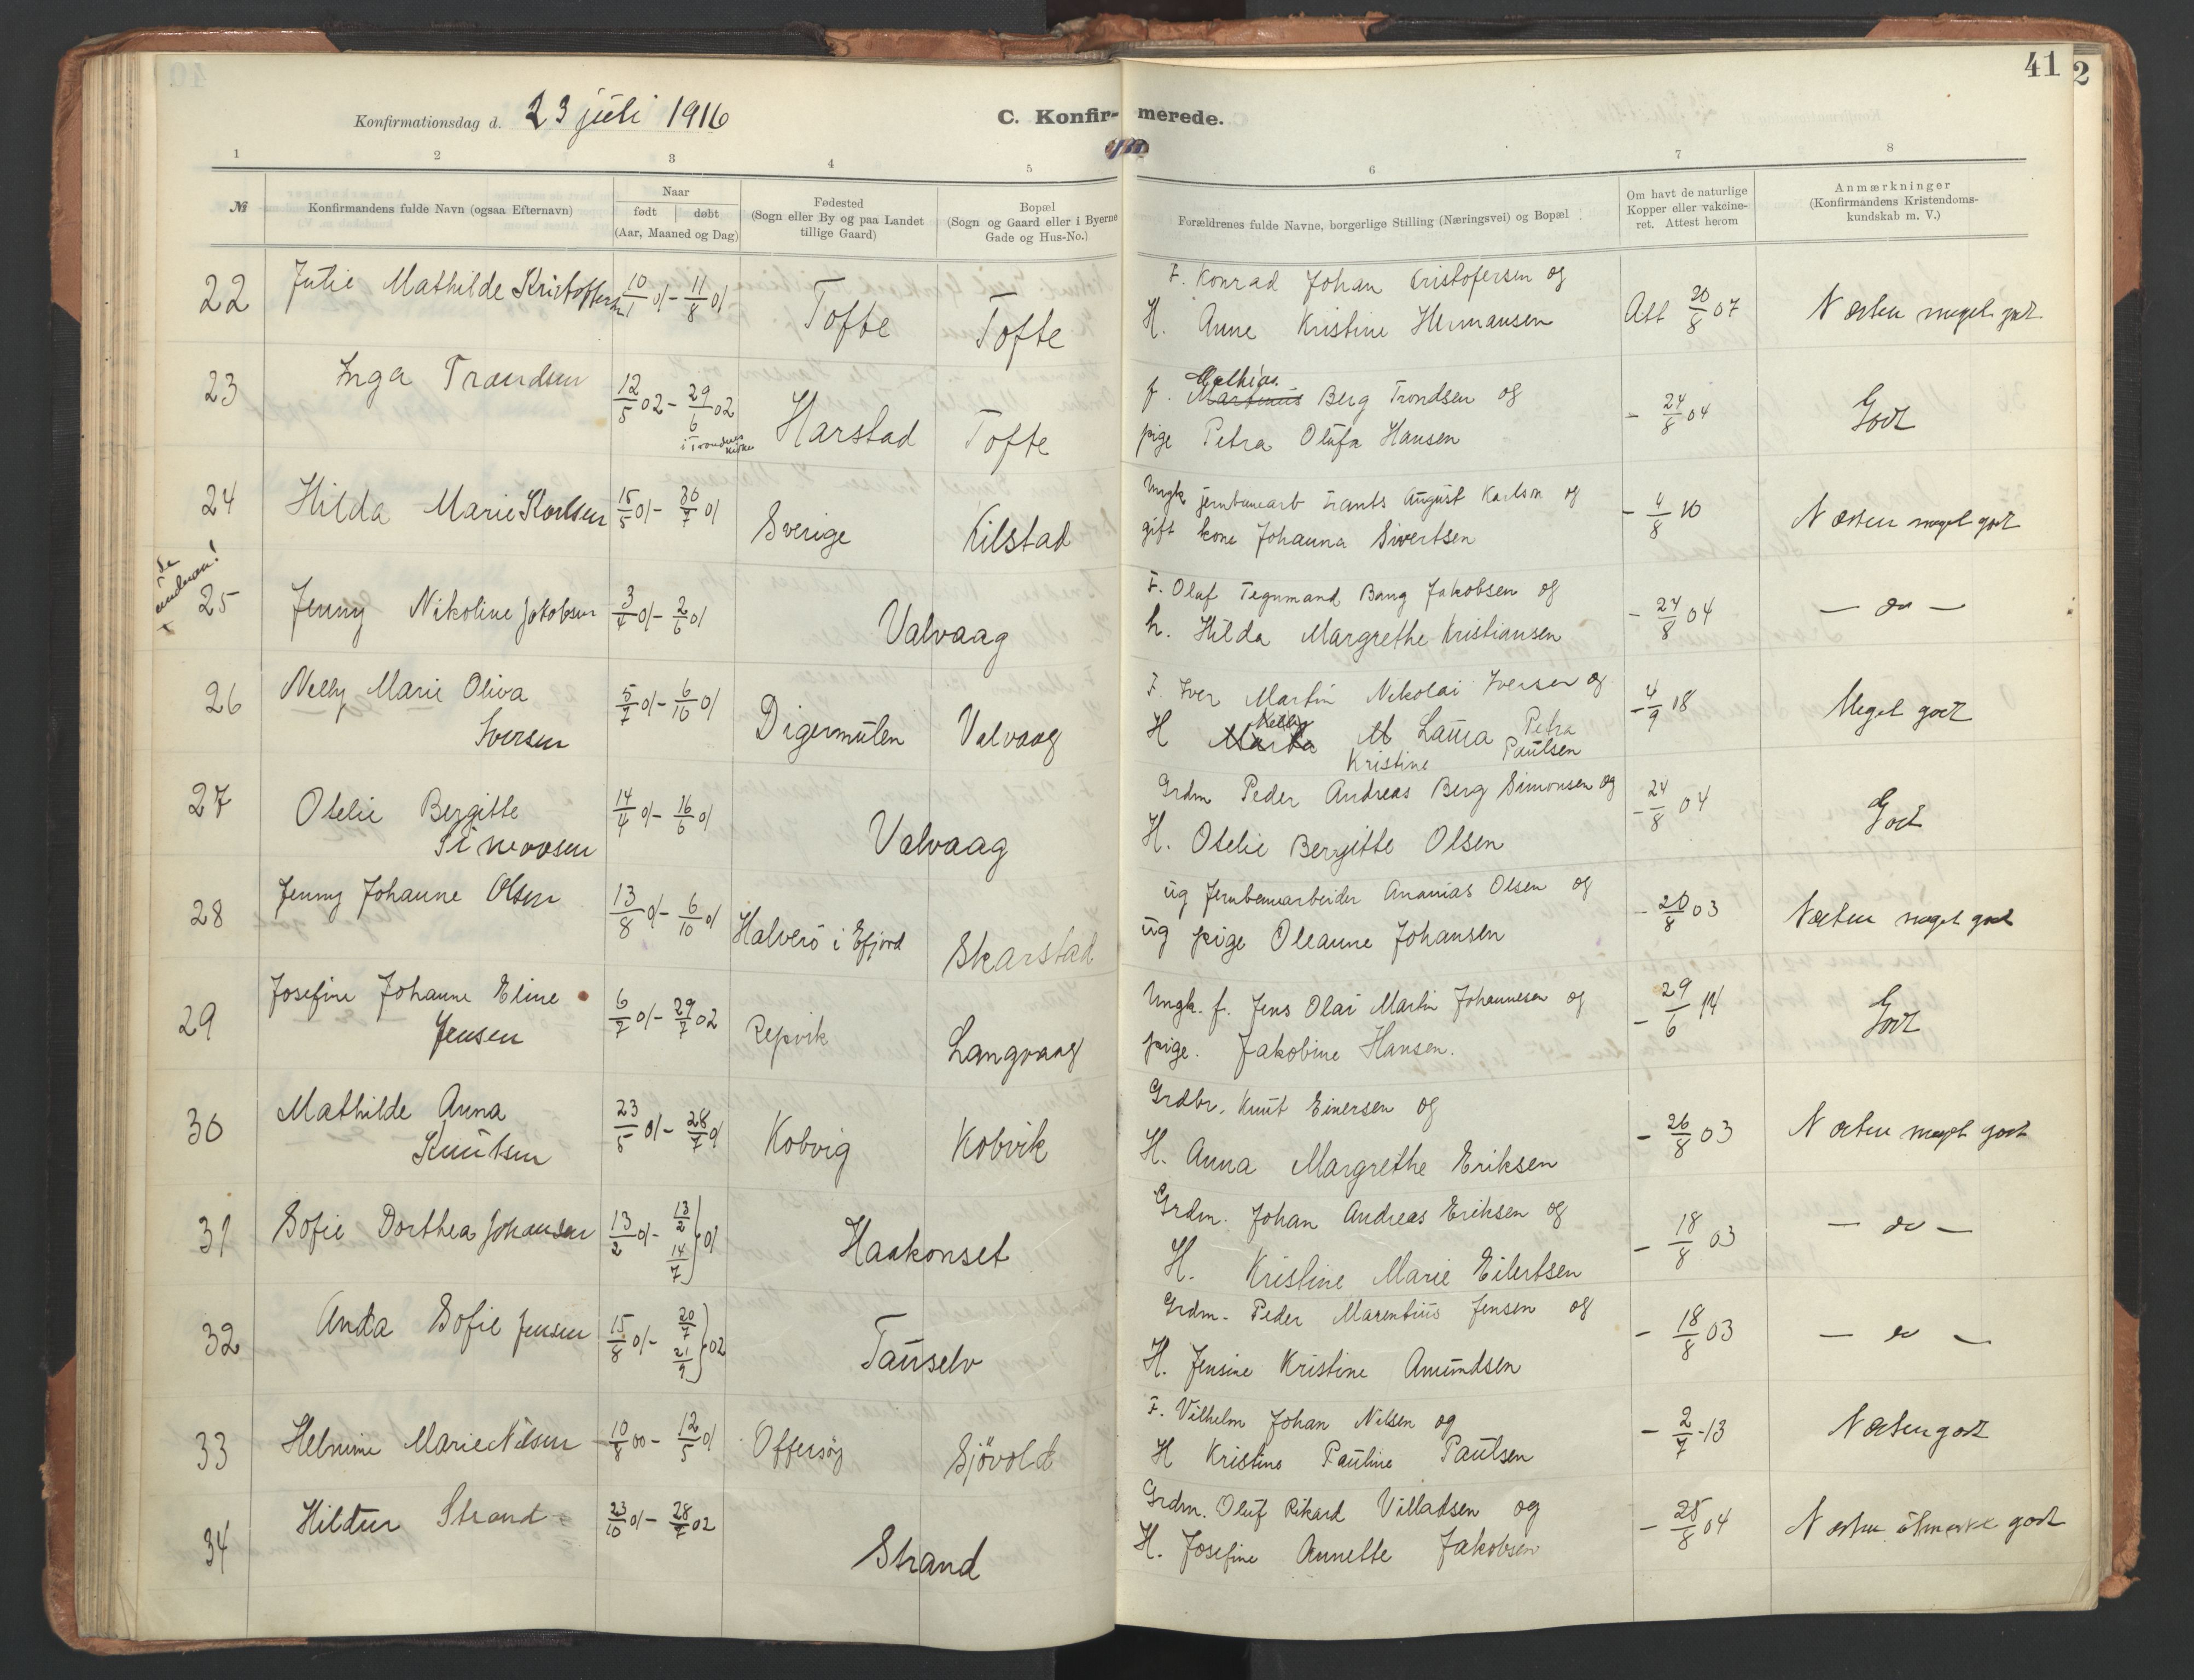 41
2
Konfirmationsdag d. 23 juli 1916
C. Konfir- merede.
1 2 3 4 5 6 7 8
№ Konfirmandens fulde Navn (ogsaa Efternavn) Naar født døbt (Aar, Maaned og Dag) Fødested (Sogn eller By og paa Landet tillige Gaard) Bopæl (Sogn og Gaard eller i Byerne Gade og Hus-No.) Forældrenes fulde Navne, borgerlige Stilling (Næringsvei) og Bopæl Om havt de naturlige Kopper eller vakcineret. Attest herom Anmærkninger (Konfirmandens Kristendomskundskab m. V.)
22 Julie Mathilde Kristoffersen 10/1 01 - 11/8 01 Tofte Tofte F. Konrad Johan Kristofersen og
H. Anne Kristine Hermansen Att 20/8 07 Næsten meget godt
23 Inga Trondsen 12/5 02 - 29/6 02 i Trondnes kirke Harstad Tofte f. Martinus Mathias Berg Trondsen og
pige Petra Olufa Hansen - 24/8 04 Godt
24 Hilda Marie Karlsen 15/5 01 - 30/7 01 Sverige Kilstad Ungk jernbanearb Frants August Karlson og
gift kone Johanna Sivertsen - 4/8 10 Næsten meget godt
25 Jenny Nikoline Jakobsen 3/4 01 - 2/6 01 Valvaag F. Olaf Tegnmand Bang Jakobsen og
h. Hilda Margrethe Kristiansen - 24/8 04 - do -
26 Nelly Marie Oliva
Iversen 5/7 01 - 6/10 01 Digermulen Valvaag F. Iver Martin Nikolai Iversen og
H Nelly M Laura Petra
Kristine Paulsen - 4/9 18 Meget godt
27 Otelie Bergitte
Simonsen 14/4 01 - 16/6 01 Valvaag Grdm Peder Andreas Berg Simonsen og
H. Otelie Bergitte Olsen - 24/8 04 Godt
28 Jenny Johanne Olsen 13/8 01 - 6/10 01 Halverö i Efjord Skarstad ug Jernbanearbeider Ananias Olsen og
ug pige Oleanne Johansen - 20/8 03 Næsten meget godt
29 Josefine Johanne Eline
Jensen 6/7 01 - 29/7 02 Repvik Langvaag Ungk. f. Jens Olai Martin Johannesen og
pige. Jakobine Hansen. - 29/6 14 Godt
30 Mathilde Anna
Knutsen 23/5 01 - 28/7 01 Kobvig Kobvik Grdbr. Knut Einersen og
H. Anna Margrethe Eriksen - 26/8 03 Næsten meget godt
31 Sofie Dorthea Johansen 13/2 01 - 13/2 14/7 } 01 Haakonset Grdm. Johan Andreas Eriksen og
H. Kristine Marie Eilertsen - 18/8 03 - do -
32 Anda Sofie Jensen 15/8 01 - 20/7 21/9 } 02 Tauselv Grdm. Peder Marentius Jensen og
H. Jensine Kristine Amundsen - 18/8 03 - do -
33 Helmine Marie Nilsen 10/8 00 - 12/5 01 Offersøy Sjövold F. Vilhelm Johan Nilsen og
H Kristine Pauline Paulsen - 2/7 -13 Næsten godt
34 Hildur Strand 23/10 01 - 28/7 02 Strand Grdm. Oluf Rikard Villadsen og
H. Josefine Annette Jakobsen - 25/8 04 Næsten utmerke godt